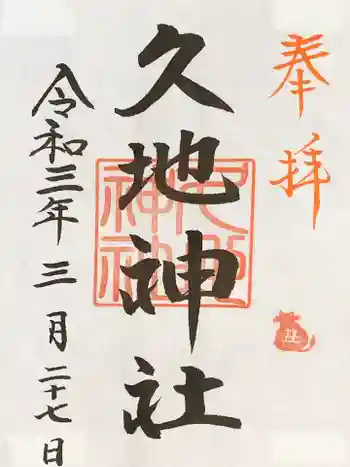 奉拝
久地神社
久地神社
令和三年三月二十七日